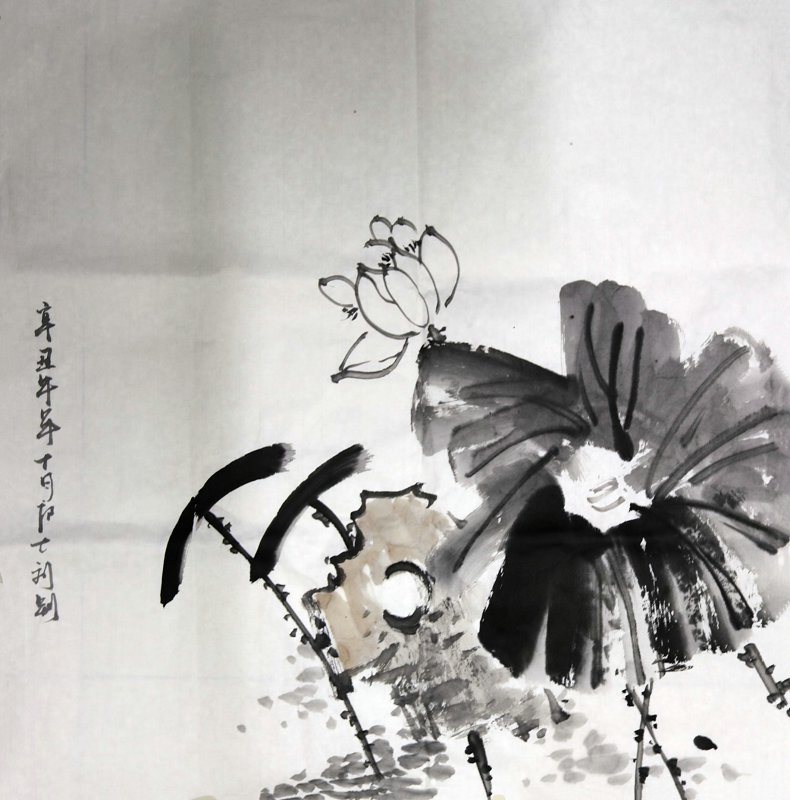 辛丑年年十月初七